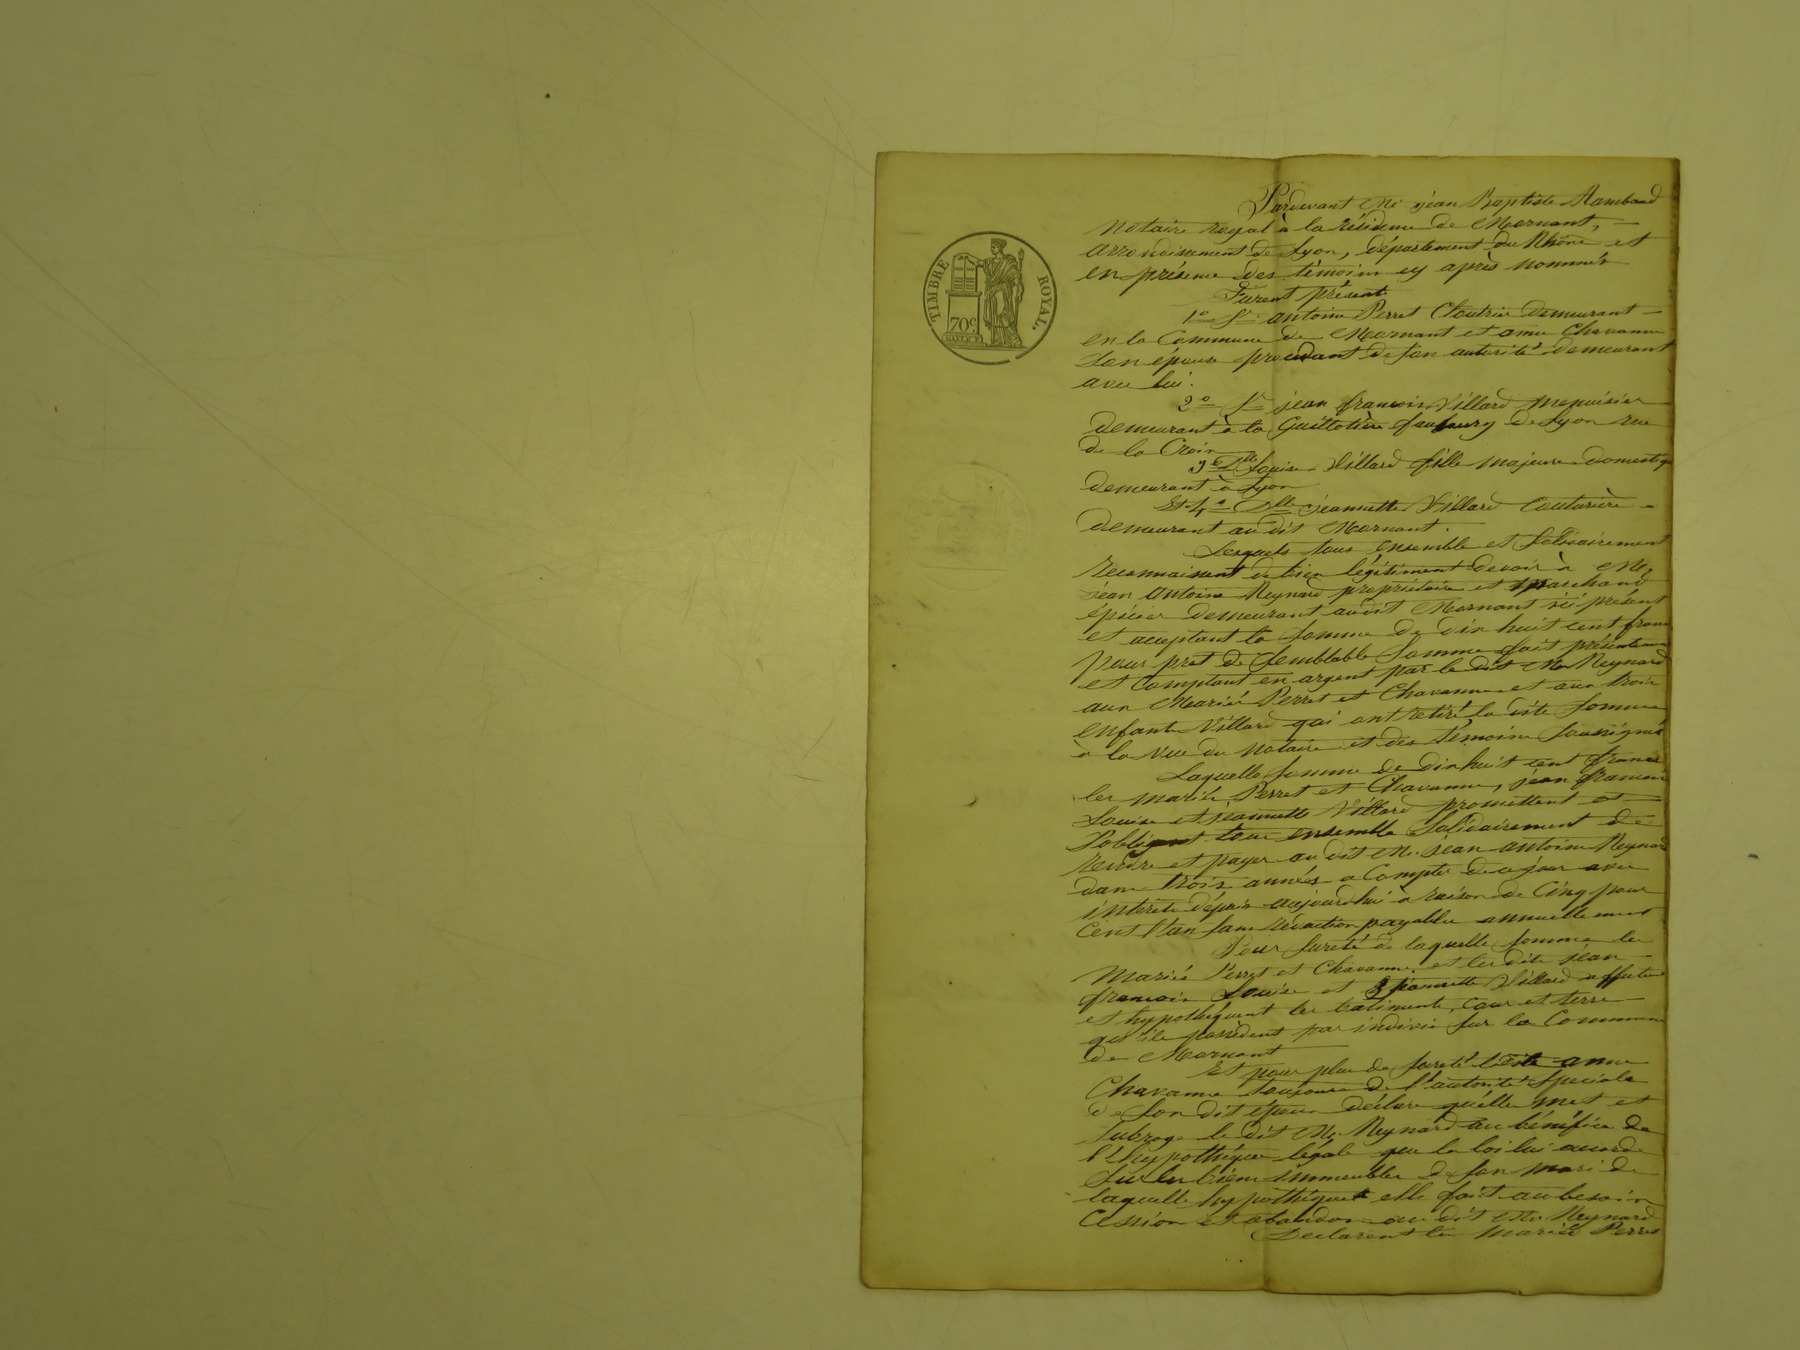 TIMBRE ROYAL.
70c.
Pardevant Me jean Baptiste Rambaud
notaire royal à la résidence de Mornant,
arrondissement de Lyon, département du Rhône et
en présence des témoins cy après nommés
Furent présent
1o Sr antoine Perret Cloutrier demeurant
en la Commune de Mornant et anne Chavanne
son épouse procédant de son autorité demeurant
avec lui.
2o Sr jean françois Villard menuisier
demeurant à la Guillotière faubourg de Lyon rue
de la Croix
3o Dlle Louise Villard fille majeure domestiq
demeurant à Lyon
Et 4o Dlle jeannette Villard Couturière
demeurant au dit Mornant.
Lesquels tous ensemble et solidairement
reconnaissent de bien légitiment devoir à Mr
jean antoine Reynard propriétaire et marchand
épicier demeurant audit Mornant ici présent
et acceptant la somme de dix huit cent franc
pour pret de semblable somme fait présentement
et comptant en argent par le dit Mr Reynard
aux Mariés Perret et Chavanne et aux trois
enfants Villard qui ont retiré la dite somme
à la vue du notaire et des témoins soussignés
Laquelle somme de dix huit cent francs
les mariés Perret et Chavanne, jean françois
Louise et jeannette Villard promettent et
s'obligent tous ensemble solidairement de
rendre et payer au dit Mr. jean antoine Reynard
dans trois années a Compter de ce jour avec
intérêts dépuis aujourdhui a raison de Cinq pour
Cent l'an sans rétention payables annuellement
Pour sureté de laquelle somme les
Mariés Perret et Chavanne. et les dits jean
françois Louise et jeannette Villard affectent
et hypothéquent les batiments, cour et terre
qu'ils possèdent par indivis sur la Commune
de Mornant
Et pour plus de sureté la dite anne
Chavanne toujours de l'autorité spéciale
de son dit époux déclare qu'elle met et
subroge le dit Mr Reynard au bénéfice de
l'hypothèque légale que la loi lui accorde
sur les biens immeubles de son mari de
laquelle hypothèque elle fait au besoin
Cession et abandon au dit Mr Reynard
Declarent les mariés Perret